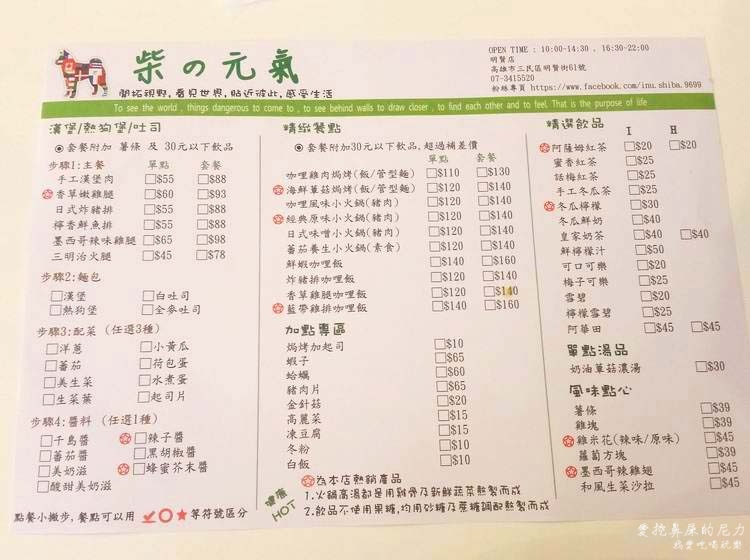 柴の元氣
開拓視野,看見世界,貼近彼此,感受生活
OPEN TIME : 10:00-14:30 , 16:30-22:00
明賢店
高雄市三民區明賢街61號
07-3415520
粉絲專頁 https://www.facebook.com/inu.shiba.9699
To see the world , things dangerous to come to , to see behind walls to draw closer , to find each other and to feel. That is the purpose of life
漢堡/熱狗堡/吐司
◉ 套餐附加 薯條 及 30元以下飲品
步驟1:主餐 單點 套餐
手工漢堡肉 □$55 □$88
香草嫩雞腿 □$60 □$93
日式炸豬排 □$55 □$88
檸香鮮魚排 □$55 □$88
墨西哥辣味雞腿 □$65 □$98
三明治火腿 □$45 □$78
步驟2:麵包
□漢堡 □白吐司
□熱狗堡 □全麥吐司
步驟3:配菜 (任選3種)
□洋蔥 □小黃瓜
□番茄 □荷包蛋
□美生菜 □水煮蛋
□生菜葉 □起司片
步驟4:醬料 (任選1種)
□千島醬 □辣子醬
□蕃茄醬 □黑胡椒醬
□美奶滋 □蜂蜜芥末醬
□酸甜美奶滋
點餐小撇步,餐點可以用 ✓○★等符號區分
精緻餐點
◉ 套餐附加30元以下飲品,超過補差價
單點 套餐
咖哩雞肉焗烤(飯/管型麵) □$110 □$130
海鮮蕈菇焗烤(飯/管型麵) □$120 □$140
咖哩風味小火鍋(豬肉) □$120 □$140
經典原味小火鍋(豬肉) □$120 □$140
日式味噌小火鍋(豬肉) □$120 □$140
蕃茄養生小火鍋(素食) □$120 □$140
鮮蝦咖哩飯 □$140 □$160
炸豬排咖哩飯 □$120 □$140
香草雞腿咖哩飯 □$120 □$140
藍帶雞排咖哩飯 □$140 □$160
加點專區
焗烤加起司 □$10
蝦子 □$65
蛤蠣 □$60
豬肉片 □$65
金針菇 □$20
高麗菜 □$15
凍豆腐 □$15
冬粉 □$10
白飯 □$10
為本店熱銷產品
健康
HOT
1.火鍋高湯都是用雞骨及新鮮蔬菜熬製而成
2.飲品不使用果糖,均用砂糖及蔗糖調配熬製而成
精選飲品
I H
阿薩姆紅茶 □$20 □$20
蜜香紅茶 □$25
話梅紅茶 □$25
手工冬瓜茶 □$25
冬瓜檸檬 □$30
冬瓜鮮奶 □$40
皇家奶茶 □$40 □$40
鮮檸檬汁 □$50
可口可樂 □$20
梅子可樂 □$25
雪碧 □$20
檸檬雪碧 □$25
阿華田 □$45 □$45
單點湯品
奶油草菇濃湯 □$30
風味點心
薯條 □$39
雞塊 □$39
雞米花(辣味/原味) □$45
蘿蔔方塊 □$39
墨西哥辣雞翅 □$45
和風生菜沙拉 □$45